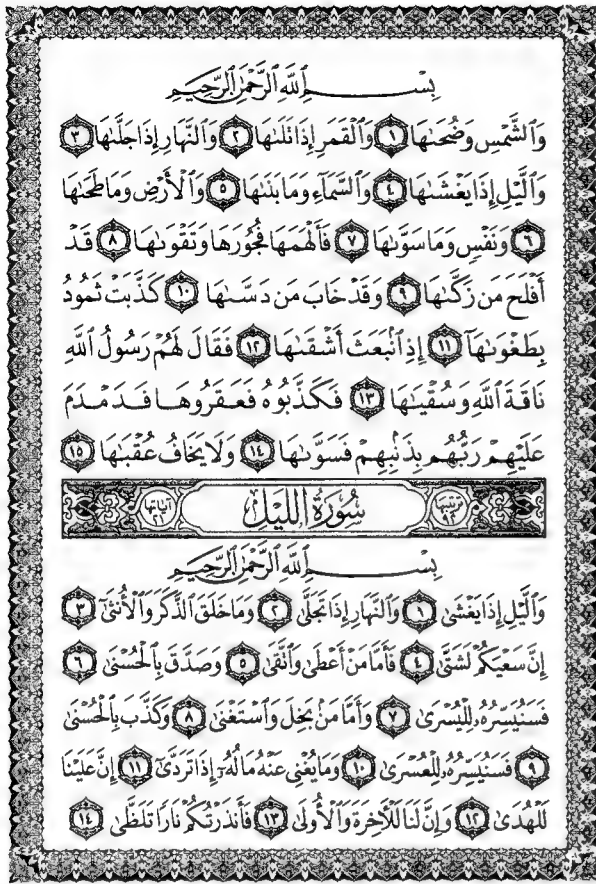 بِسْمِ ٱللَّهِ ٱلرَّحْمَٰنِ ٱلرَّحِيمِ
وَٱلشَّمْسِ وَضُحَىٰهَا ١ وَٱلْقَمَرِ إِذَا تَلَىٰهَا ٢ وَٱلنَّهَارِ إِذَا جَلَّىٰهَا ٣
وَٱلَّيْلِ إِذَا يَغْشَىٰهَا ٤ وَٱلسَّمَآءِ وَمَا بَنَىٰهَا ٥ وَٱلْأَرْضِ وَمَا طَحَىٰهَا
٦ وَنَفْسٍ وَمَا سَوَّىٰهَا ٧ فَأَلْهَمَهَا فُجُورَهَا وَتَقْوَىٰهَا ٨ قَدْ
أَفْلَحَ مَن زَكَّىٰهَا ٩ وَقَدْ خَابَ مَن دَسَّىٰهَا ١٠ كَذَّبَتْ ثَمُودُ
بِطَغْوَىٰهَآ ١١ إِذِ ٱنۢبَعَثَ أَشْقَىٰهَا ١٢ فَقَالَ لَهُمْ رَسُولُ ٱللَّهِ
نَاقَةَ ٱللَّهِ وَسُقْيَٰهَا ١٣ فَكَذَّبُوهُ فَعَقَرُوهَا فَدَمْدَمَ
عَلَيْهِمْ رَبُّهُم بِذَنۢبِهِمْ فَسَوَّىٰهَا ١٤ وَلَا يَخَافُ عُقْبَٰهَا ١٥
ترتيبها ٩٢ سُورَةُ اللَّيْلِ آياتها ٢١
بِسْمِ ٱللَّهِ ٱلرَّحْمَٰنِ ٱلرَّحِيمِ
وَٱلَّيْلِ إِذَا يَغْشَىٰ ١ وَٱلنَّهَارِ إِذَا تَجَلَّىٰ ٢ وَمَا خَلَقَ ٱلذَّكَرَ وَٱلْأُنثَىٰٓ ٣
إِنَّ سَعْيَكُمْ لَشَتَّىٰ ٤ فَأَمَّا مَنْ أَعْطَىٰ وَٱتَّقَىٰ ٥ وَصَدَّقَ بِٱلْحُسْنَىٰ ٦
فَسَنُيَسِّرُهُۥ لِلْيُسْرَىٰ ٧ وَأَمَّا مَنۢ بَخِلَ وَٱسْتَغْنَىٰ ٨ وَكَذَّبَ بِٱلْحُسْنَىٰ
٩ فَسَنُيَسِّرُهُۥ لِلْعُسْرَىٰ ١٠ وَمَا يُغْنِى عَنْهُ مَالُهُۥٓ إِذَا تَرَدَّىٰٓ ١١ إِنَّ عَلَيْنَا
لَلْهُدَىٰ ١٢ وَإِنَّ لَنَا لَلْـَٔاخِرَةَ وَٱلْأُولَىٰ ١٣ فَأَنذَرْتُكُمْ نَارًا تَلَظَّىٰ ١٤